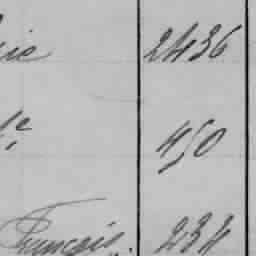 2436
450
François. 234